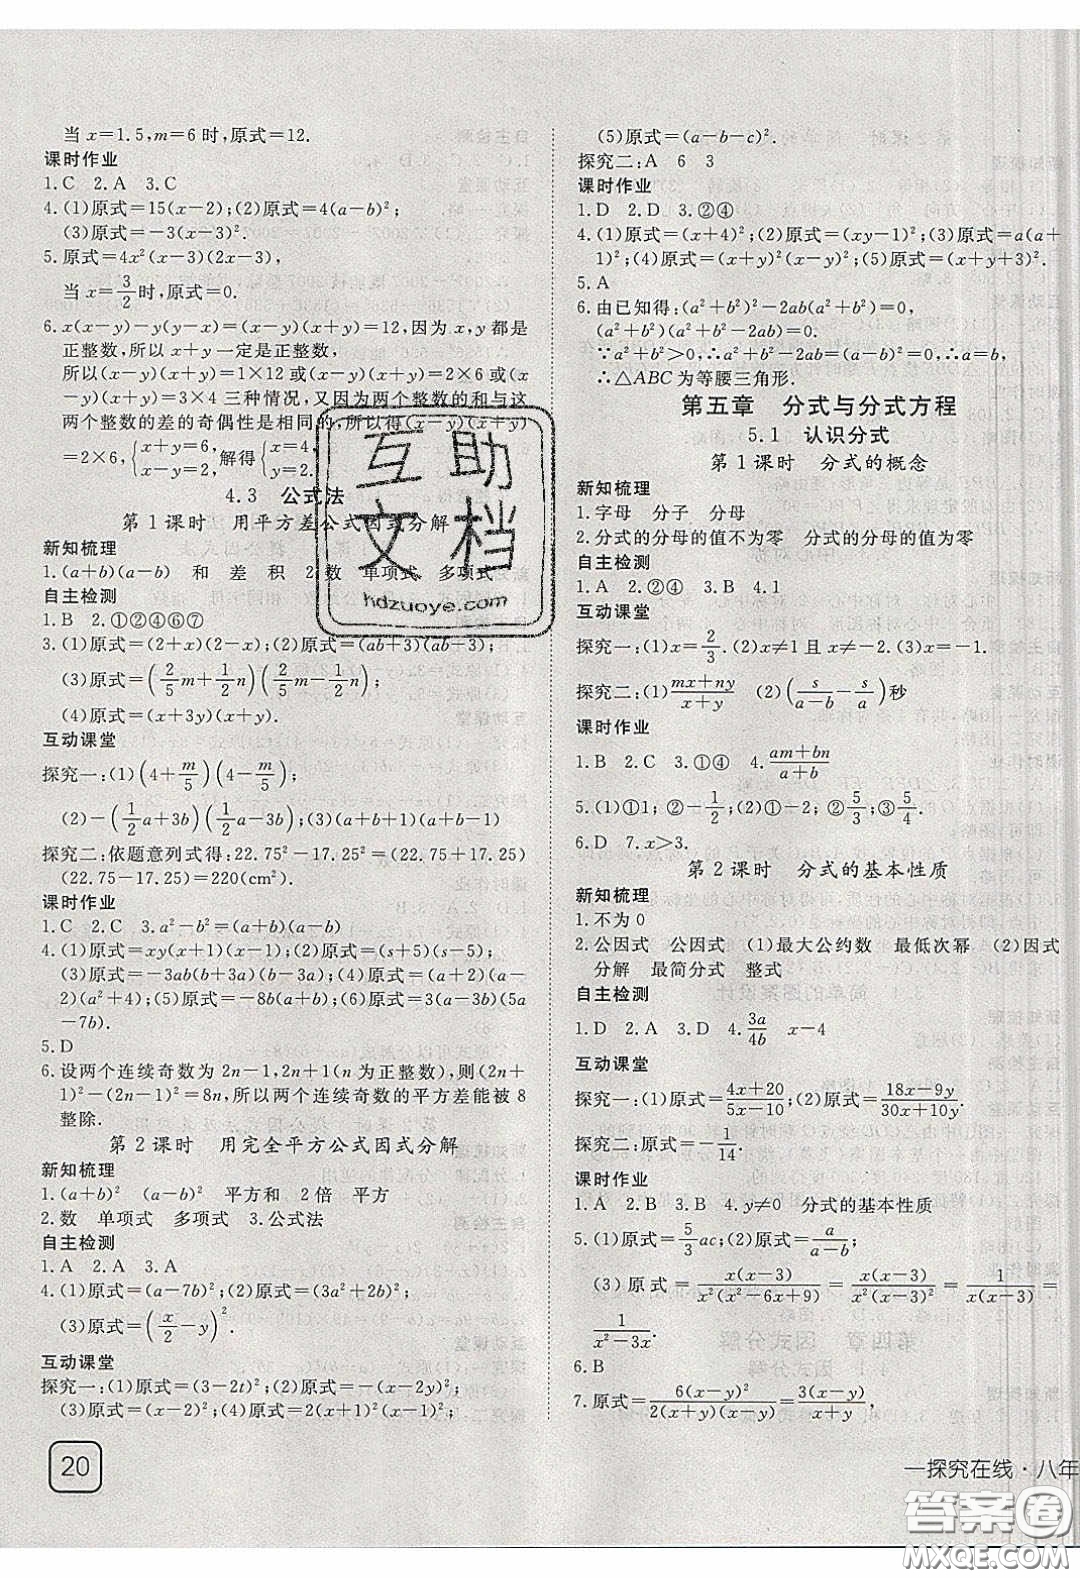 当x=1.5,m=6时,原式=12.
课时作业
1.C 2.A 3.C
4.(1)原式=15(x-2);(2)原式=4(a-b)²;
(3)原式=-3(x-3)².
5.原式=4x²(x-3)(2x-3),
当x=3/2时,原式=0.
6.x(x-y)-y(y-x)=(x-y)(x+y)=12,因为x,y都是
正整数,所以x+y一定是正整数,
所以(x-y)(x+y)=1×12或(x-y)(x+y)=2×6或(x-
y)(x+y)=3×4三种情况,又因为两个整数的和与这
两个整数的差的奇偶性是相同的,所以得(x-y)(x+y)
=2×6,{x+y=6, x-y=2, 解得{x=4, y=2.
4.3 公式法
第1课时 用平方差公式因式分解
新知梳理
1.(a+b)(a-b) 和 差 积 2.数 单项式 多项式
自主检测
1.B 2.①②④⑥⑦
3.(1)原式=(2+x)(2-x);(2)原式=(ab+3)(ab-3);
(3)原式=(2/5m+1/2n)(2/5m-1/2n);
(4)原式=(x+3y)(x-y).
互动课堂
探究一:(1)(4+m/5)(4-m/5);
(2)-(1/2a+3b)(1/2a-3b);(3)(a+b+1)(a+b-1)
探究二:依题意列式得:22.75²-17.25²=(22.75+17.25)
(22.75-17.25)=220(cm²).
课时作业
1.C 2.C 3.a²-b²=(a+b)(a-b)
4.(1)原式=xy(x+1)(x-1);(2)原式=(s+5)(s-5);
(3)原式=-3ab(b+3a)(b-3a);(4)原式=(a+2)(a-
2)(a²+4);(5)原式=-8b(a+b);(6)原式=3(a+b)(5a
-7b).
5.D
6.设两个连续奇数为2n-1,2n+1(n为正整数),则(2n+
1)²-(2n-1)²=8n,所以两个连续奇数的平方差能被8
整除.
第2课时 用完全平方公式因式分解
新知梳理
1.(a+b)² (a-b)² 平方和 2倍 平方
2.数 单项式 多项式 3.公式法
自主检测
1.A 2.A 3.A
4.(1)原式=(a-7b)²;(2)原式=(3a²+2b)²;
(3)原式=(x/2-y)².
互动课堂
探究一:(1)原式=(3-2t)²;(2)原式=(x+y-7)²;
(3)原式=-(x-y)²;(4)原式=2(x+1)²(x-1)²;
20
(5)原式=(a-b-c)².
探究二:A 6 3
课时作业
1.D 2.D 3.②④
4.(1)原式=(x+4)²;(2)原式=(xy-1)²;(3)原式=a(a+
1)²;(4)原式=(x+y)²(x-y)²;(5)原式=(x+y+3)².
5.A
6.由已知得:(a²+b²)²-2ab(a²+b²)=0,
(a²+b²)(a²+b²-2ab)=0.
∵a²+b²>0,∴a²+b²-2ab=(a-b)²=0,∴a=b,
∴△ABC为等腰三角形.
第五章 分式与分式方程
5.1 认识分式
第1课时 分式的概念
新知梳理
1.字母 分子 分母
2.分式的分母的值不为零 分式的分母的值为零
自主检测
1.A 2.②④ 3.B 4.1
互动课堂
探究一:(1)x=2/3.(2)x≠1且x≠-2.(3)x=-1.
探究二:(1)(mx+ny)/(x+y) (2)(s/(a-b)-s/a)秒
课时作业
1.B 2.C 3.①④ 4.(am+bn)/(a+b)
5.(1)①1; ②-1/2;(2)①-2; ②5/3;③5/4.
6.D 7.x>3.
第2课时 分式的基本性质
新知梳理
1.不为0
2.公因式 公因式 (1)最大公约数 最低次幂 (2)因式
分解 最简分式 整式
自主检测
1.D 2.A 3.D 4.3a/4b x-4
互动课堂
探究一:(1)原式=(4x+20)/(5x-10);(2)原式=(18x-9y)/(30x+10y).
探究二:原式=-1/14.
课时作业
1.A 2.B 3.B 4.y≠0 分式的基本性质
5.(1)原式=5/3ac;(2)原式=a/(a-b);
(3)原式=x(x-3)/(x²(x²-6x+9))=x(x-3)/(x²(x-3)²)=1/(x(x-3))=
1/(x²-3x).
6.B
7.原式=6(x-y)²/(2(x+y)(x-y))=3(x-y)/(x+y),
一探究在线·八年
互助
文档
hdzuoye.com
答案圈
MXQE.COM